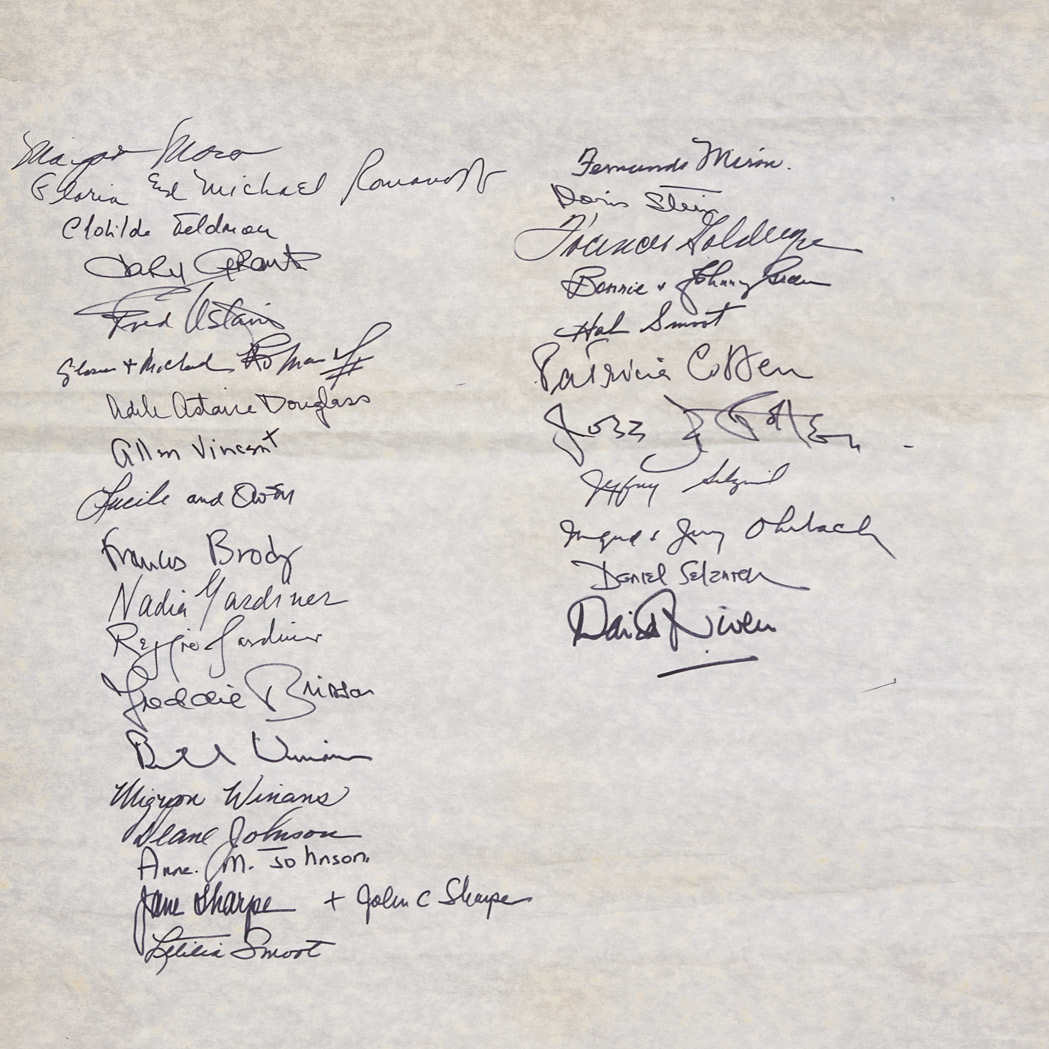 Margot Moser
Gloria and Michael Romanoff
Clotilde Feldman
Cary Grant
Fred Astaire
Gloria + Michael Romanoff
Adele Astaire Douglass
Allen Vincent
Lucile and Owen
Frances Brody
Nadia Gardiner
Reggie Gardiner
Freddie Brisson
Bill
Mignon Winans
Deane Johnson
Anne. M. Johnson.
Jane Sharpe + John C Sharpe
Letitia Smoot
Fernanda
Doris Stein
Frances Goldwyn
Bonnie + Johnny Green
Hal Smoot
Patricia Cotten
Joseph Cotten
Jeffrey Selznick
Jerry Ohrbach
Daniel Selznick
David Niven